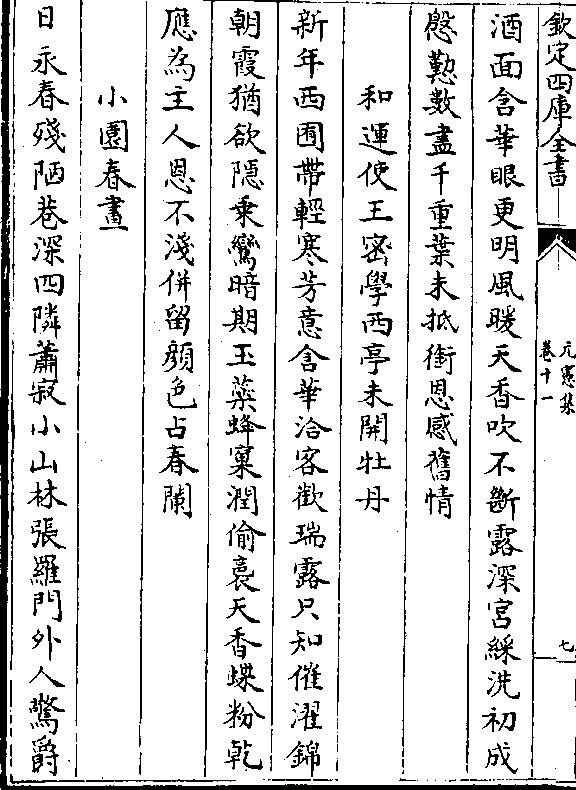 欽定四庫全書
元憲集
卷十一
七
酒面含華眼更明風暖天香吹不斷露深宮綵洗初成
慇懃數盡千重葉未抵銜恩感舊情
和運使王密學西亭未開牡丹
新年西圃帶輕寒芳意含華洽客歡瑞露只知催濯錦
朝霞猶欲隠乗鸞暗期玉蘂蜂窠潤偷裛天香蝶粉乾
應為主人恩不淺併留顔色占春闌
小園春晝
日永春殘陋巷深四隣蕭寂小山林張羅門外人驚爵